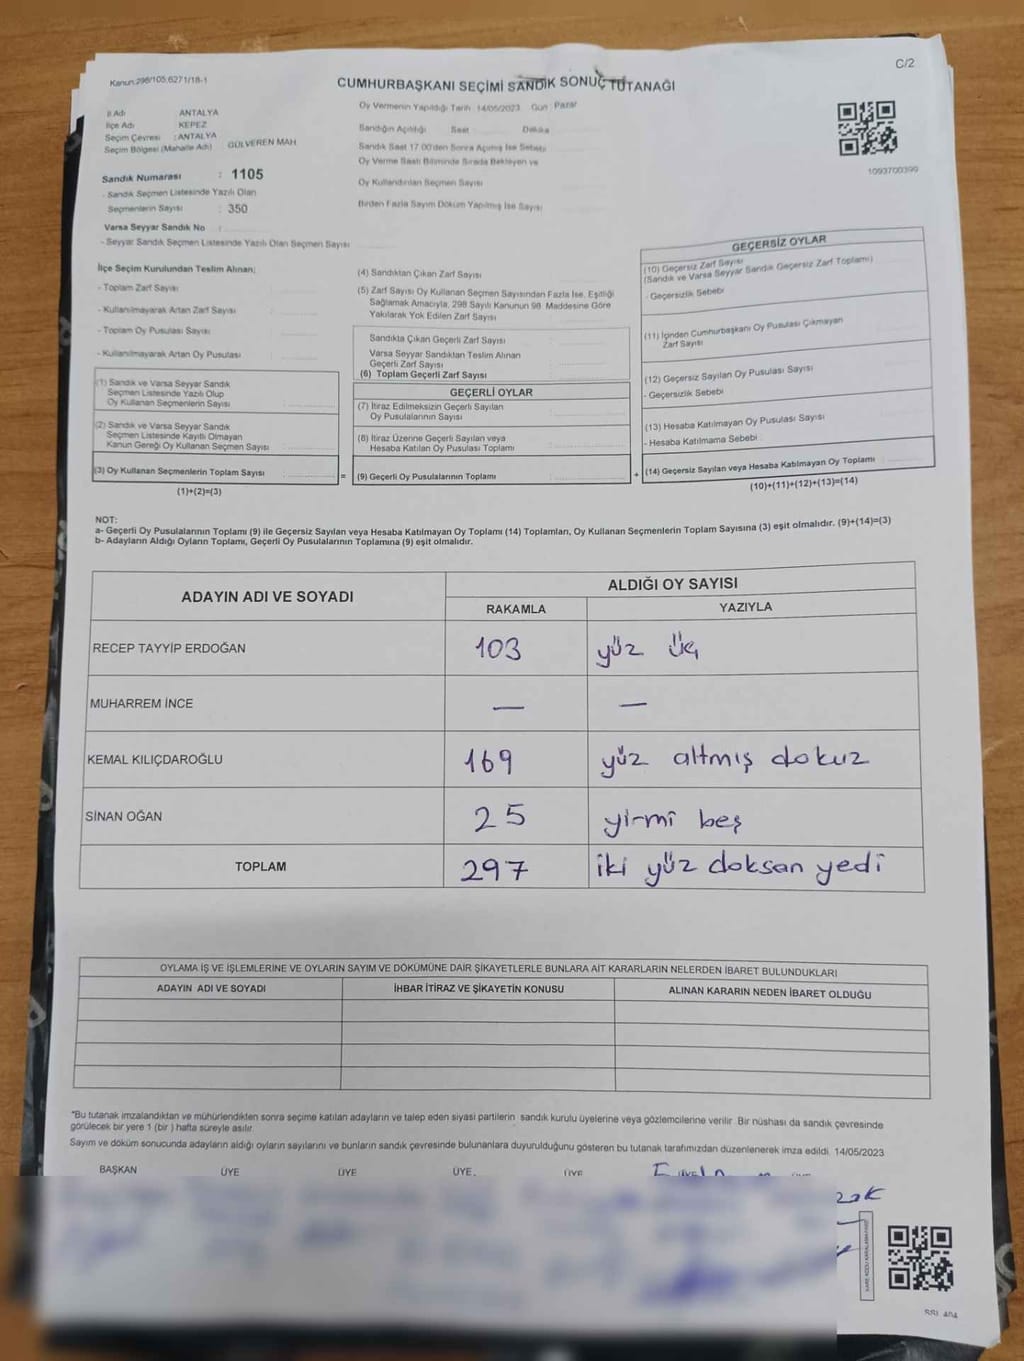 Kanun:298/105;6271/18-1
C/2
CUMHURBAŞKANI SEÇİMİ SANDIK SONUÇ TUTANAĞI
İl Adı ANTALYA
İlçe Adı KEPEZ
Seçim Çevresi : ANTALYA
Seçim Bölgesi (Mahalle Adı) GÜLVEREN MAH
Sandık Numarası : 1105
- Sandık Seçmen Listesinde Yazılı Olan
Seçmenlerin Sayısı : 350
Varsa Seyyar Sandık No :
- Seyyar Sandık Seçmen Listesinde Yazılı Olan Seçmen Sayısı
Oy Vermenin Yapıldığı Tarih 14/05/2023 Gün Pazar
Sandığın Açıldığı Saat Dakika
Sandık Saat 17.00'den Sonra Açılmış İse Sebebi
Oy Verme Saati Bitiminde Sırada Bekleyen ve
Oy Kullandırılan Seçmen Sayısı
Birden Fazla Sayım Döküm Yapılmış İse Sayısı
1093700399
İlçe Seçim Kurulundan Teslim Alınan;
- Toplam Zarf Sayısı
- Kullanılmayarak Artan Zarf Sayısı
- Toplam Oy Pusulası Sayısı
- Kullanılmayarak Artan Oy Pusulası
(1) Sandık ve Varsa Seyyar Sandık
Seçmen Listesinde Yazılı Olup
Oy Kullanan Seçmenlerin Sayısı
(2) Sandık ve Varsa Seyyar Sandık
Seçmen Listesinde Kayıtlı Olmayan
Kanun Gereği Oy Kullanan Seçmen Sayısı
(3) Oy Kullanan Seçmenlerin Toplam Sayısı
(1)+(2)=(3)
(4) Sandıktan Çıkan Zarf Sayısı
(5) Zarf Sayısı Oy Kullanan Seçmen Sayısından Fazla İse, Eşitliği
Sağlamak Amacıyla, 298 Sayılı Kanunun 98. Maddesine Göre
Yakılarak Yok Edilen Zarf Sayısı
Sandıkta Çıkan Geçerli Zarf Sayısı
Varsa Seyyar Sandıktan Teslim Alınan
Geçerli Zarf Sayısı
(6) Toplam Geçerli Zarf Sayısı
GEÇERLİ OYLAR
(7) İtiraz Edilmeksizin Geçerli Sayılan
Oy Pusulalarının Sayısı
(8) İtiraz Üzerine Geçerli Sayılan veya
Hesaba Katılan Oy Pusulası Toplamı
= (9) Geçerli Oy Pusulalarının Toplamı +
GEÇERSİZ OYLAR
(10) Geçersiz Zarf Sayısı
(Sandık ve Varsa Seyyar Sandık Geçersiz Zarf Toplamı)
- Geçersizlik Sebebi
(11) İçinden Cumhurbaşkanı Oy Pusulası Çıkmayan
Zarf Sayısı
(12) Geçersiz Sayılan Oy Pusulası Sayısı
- Geçersizlik Sebebi
(13) Hesaba Katılmayan Oy Pusulası Sayısı
- Hesaba Katılmama Sebebi
(14) Geçersiz Sayılan veya Hesaba Katılmayan Oy Toplamı
(10)+(11)+(12)+(13)=(14)
NOT:
a- Geçerli Oy Pusulalarının Toplamı (9) ile Geçersiz Sayılan veya Hesaba Katılmayan Oy Toplamı (14) Toplamları, Oy Kullanan Seçmenlerin Toplam Sayısına (3) eşit olmalıdır. (9)+(14)=(3)
b- Adayların Aldığı Oyların Toplamı, Geçerli Oy Pusulalarının Toplamına (9) eşit olmalıdır.
ADAYIN ADI VE SOYADI ALDIĞI OY SAYISI
RAKAMLA YAZIYLA
RECEP TAYYİP ERDOĞAN 103 yüz üç
MUHARREM İNCE — —
KEMAL KILIÇDAROĞLU 169 yüz altmış dokuz
SİNAN OĞAN 25 yirmi beş
TOPLAM 297 iki yüz doksan yedi
OYLAMA İŞ VE İŞLEMLERİNE VE OYLARIN SAYIM VE DÖKÜMÜNE DAİR ŞİKAYETLERLE BUNLARA AİT KARARLARIN NELERDEN İBARET BULUNDUKLARI
ADAYIN ADI VE SOYADI İHBAR İTİRAZ VE ŞİKAYETİN KONUSU ALINAN KARARIN NEDEN İBARET OLDUĞU
*Bu tutanak imzalandıktan ve mühürlendikten sonra seçime katılan adayların ve talep eden siyasi partilerin sandık kurulu üyelerine veya gözlemcilerine verilir. Bir nüshası da sandık çevresinde
görülecek bir yere 1 (bir) hafta süreyle asılır.
Sayım ve döküm sonucunda adayların aldığı oyların sayılarını ve bunların sandık çevresinde bulunanlara duyurulduğunu gösteren bu tutanak tarafımızdan düzenlenerek imza edildi. 14/05/2023
BAŞKAN ÜYE ÜYE ÜYE ÜYE